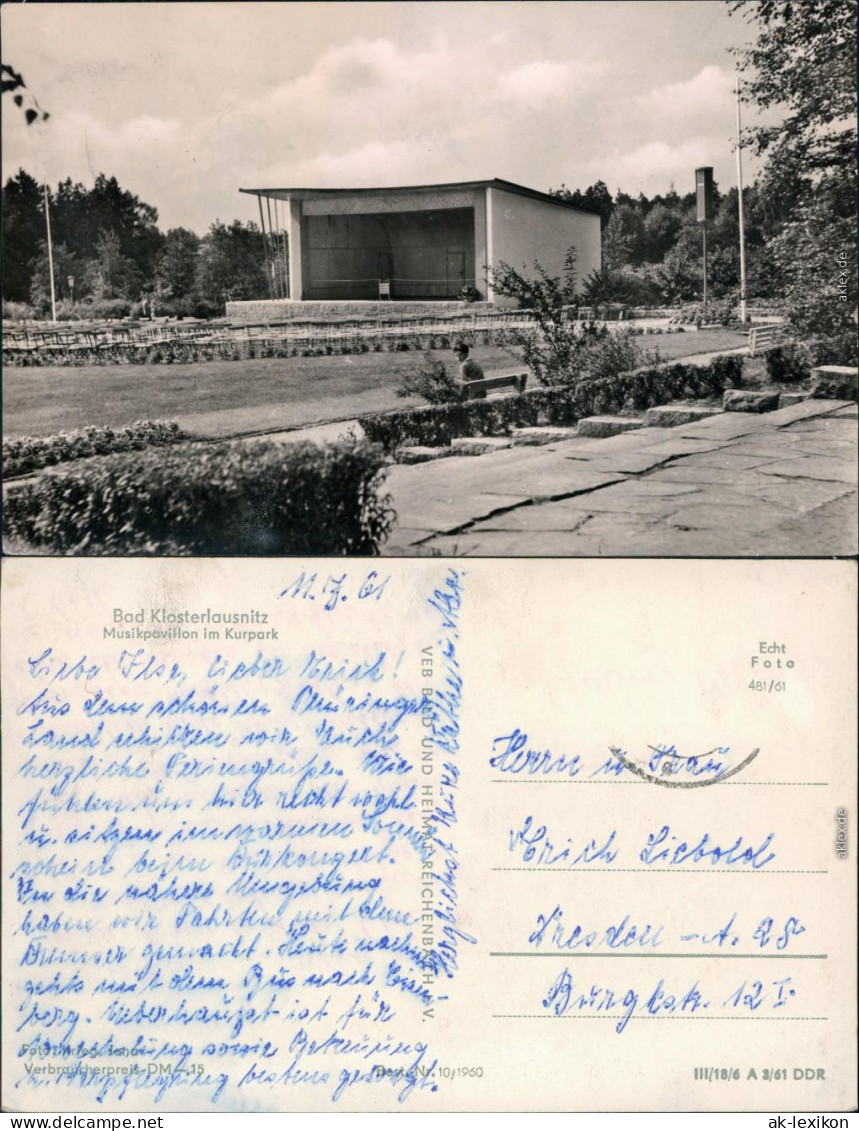 11.7.61
Bad Klosterlausnitz
Musikpavillon im Kurpark
Liebe Ilse, lieber Erich!
Aus dem schönen Thüringer
Land schicken wir Euch
herzliche Feriengrüße. Wir
fühlen uns hier recht wohl
u. sitzen im warmen Sonnen-
schein beim Kurkonzert.
In die nähere Umgebung
haben wir Fahrten mit dem
Brummer gemacht. Heute nachm.
gehts mit dem Bus nach Eisen-
berg. Ueberhaupt ist für
sowie Betreuung
u. Verpflegung bestens gesorgt.
Herzlichst Eure Käthe u.
VEB BILD UND HEIMAT REICHENBACH i. V.
Verbraucherpreis DM -.15
Best.-Nr. 10/1960
Echt
Foto
481/61
Herrn u Frau
Erich Liebold
Dresden - A. 28
Burgkstr. 12 I.
III/18/6 A 3/61 DDR
aklex.de
aklex.de
www.delcampe.net
ak-lexikon